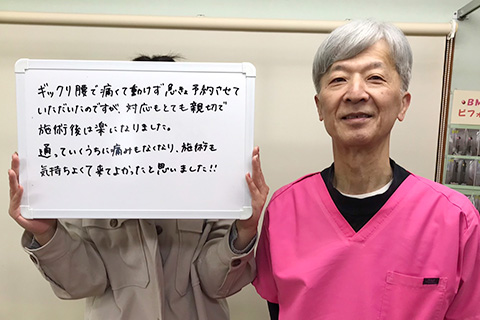 ギックリ腰で痛くて動けず急きょ予約させて
いただいたのですが、対応もとても親切で
施術後は楽になりました。
通っていくうちに痛みもなくなり、施術も
気持ちよくて来てよかったと思いました!!
BM
ビフォ